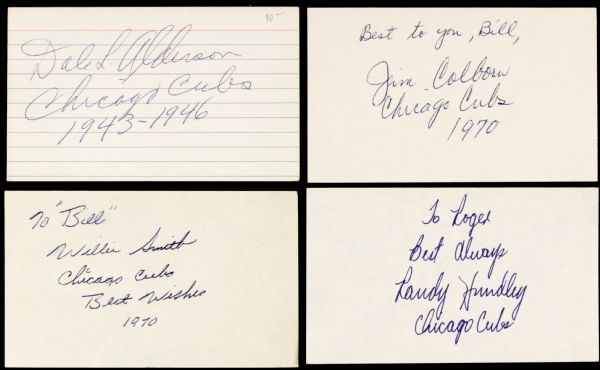 10-
Dale L Alderson
Chicago Cubs
1943-1946
Best to you, Bill,
Jim Colborn
Chicago Cubs
1970
To "Bill"
Willie Smith
Chicago Cubs
Best Wishes
1970
To Roger
Best Always
Randy Hundley
Chicago Cubs